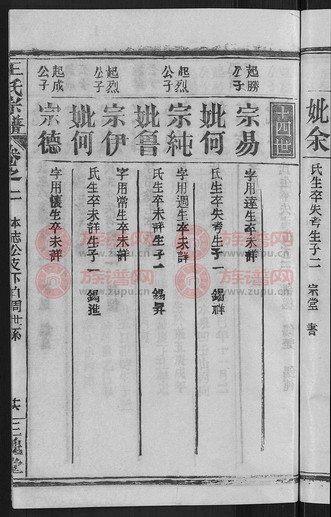 妣余
氏生卒失考生子二 宗堂 書
十四世
起勝公子
宗易
字用達生卒未詳
妣何
氏生卒未詳生子一 錫祥
起烈公子
宗純
字用週生卒未詳
妣魯
氏生卒未詳生子一 錫昇
起烈公子
宗伊
字用常生卒未詳
妣何
氏生卒未詳生子一 錫進
起成公子
宗德
字用懷生卒未詳
王氏宗譜
卷之二
公支下自周世系
三槐堂
族谱网
www.zupu.cn